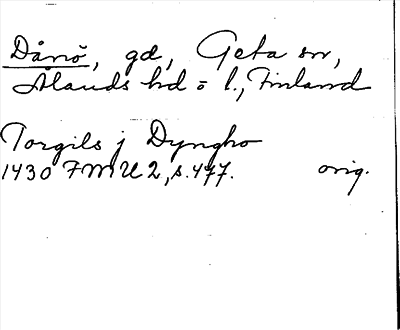 Dånö, gd, Geta sn,
Ålands hd o l., Finland
Torgils j Dyngho
1430 FMU 2, s. 477. orig.